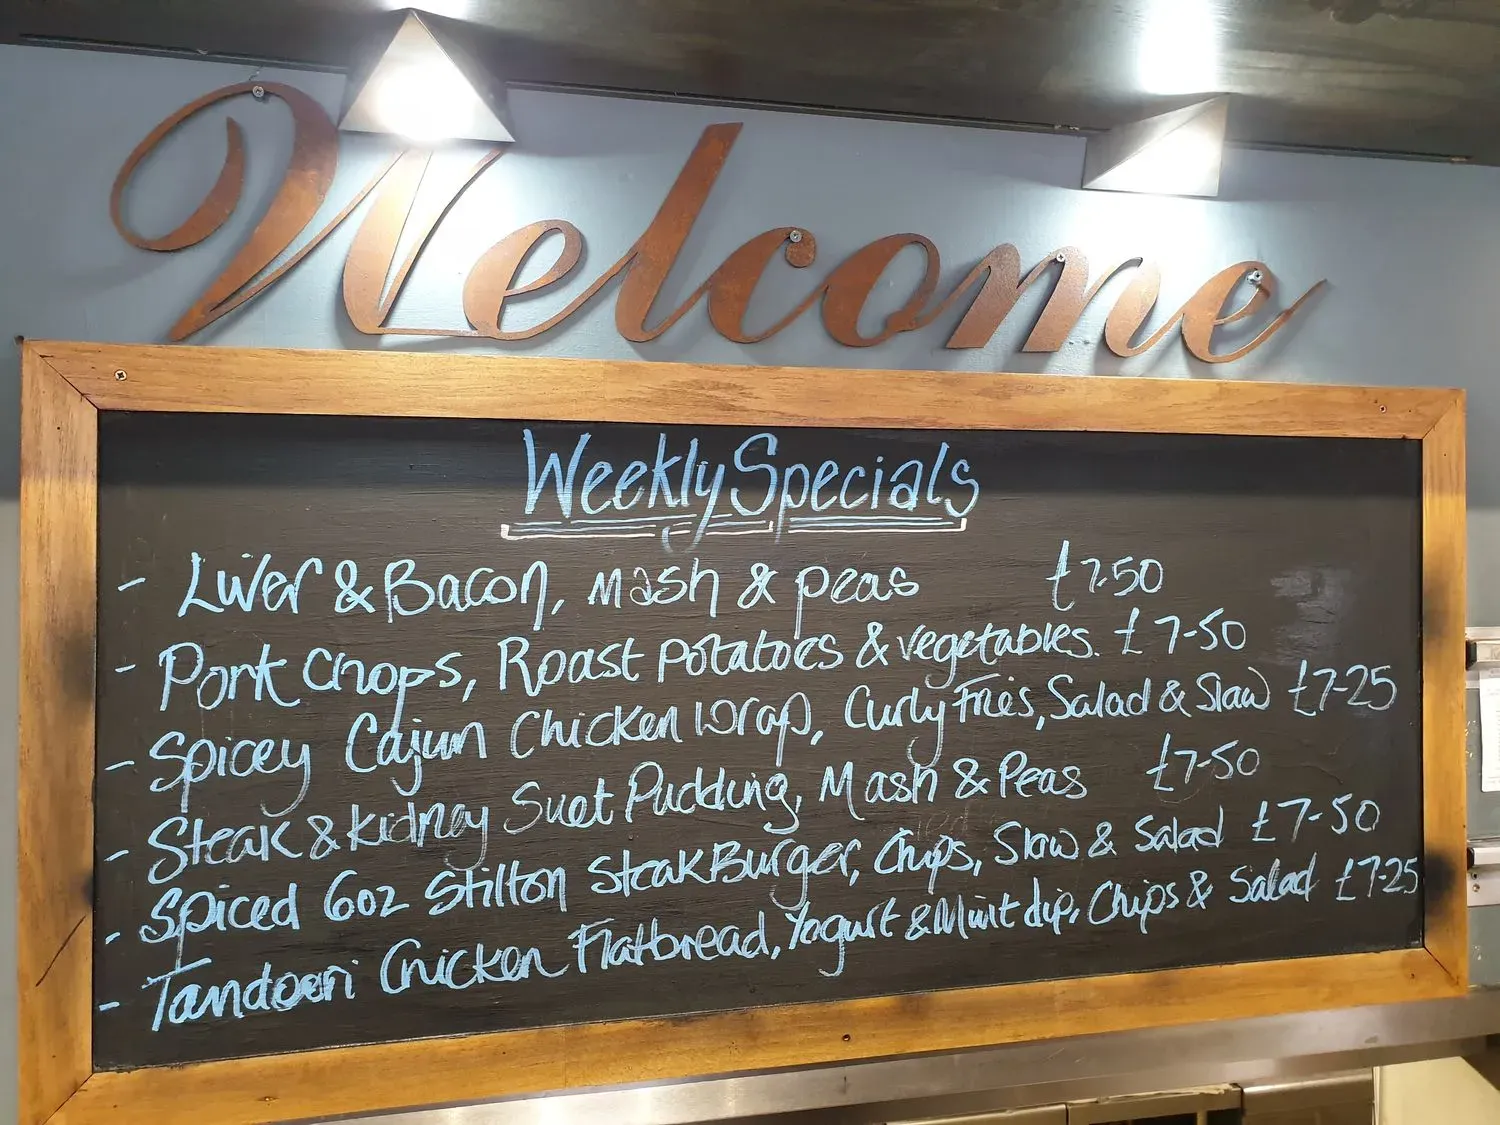 Welcome
Weekly Specials
- Liver & Bacon, Mash & peas £7.50
- Pork Chops, Roast Potatoes & vegetables. £7-50
- Spicey Cajun Chicken Wrap, Curly Fries, Salad & Slaw £7-25
- Steak & Kidney Suet Pudding, Mash & Peas £7-50
- Spiced 6oz Stilton Steak Burger, Chips, Slaw & Salad £7-50
- Tandoori Chicken Flatbread, Yogurt & Mint dip, Chips & Salad £7-25